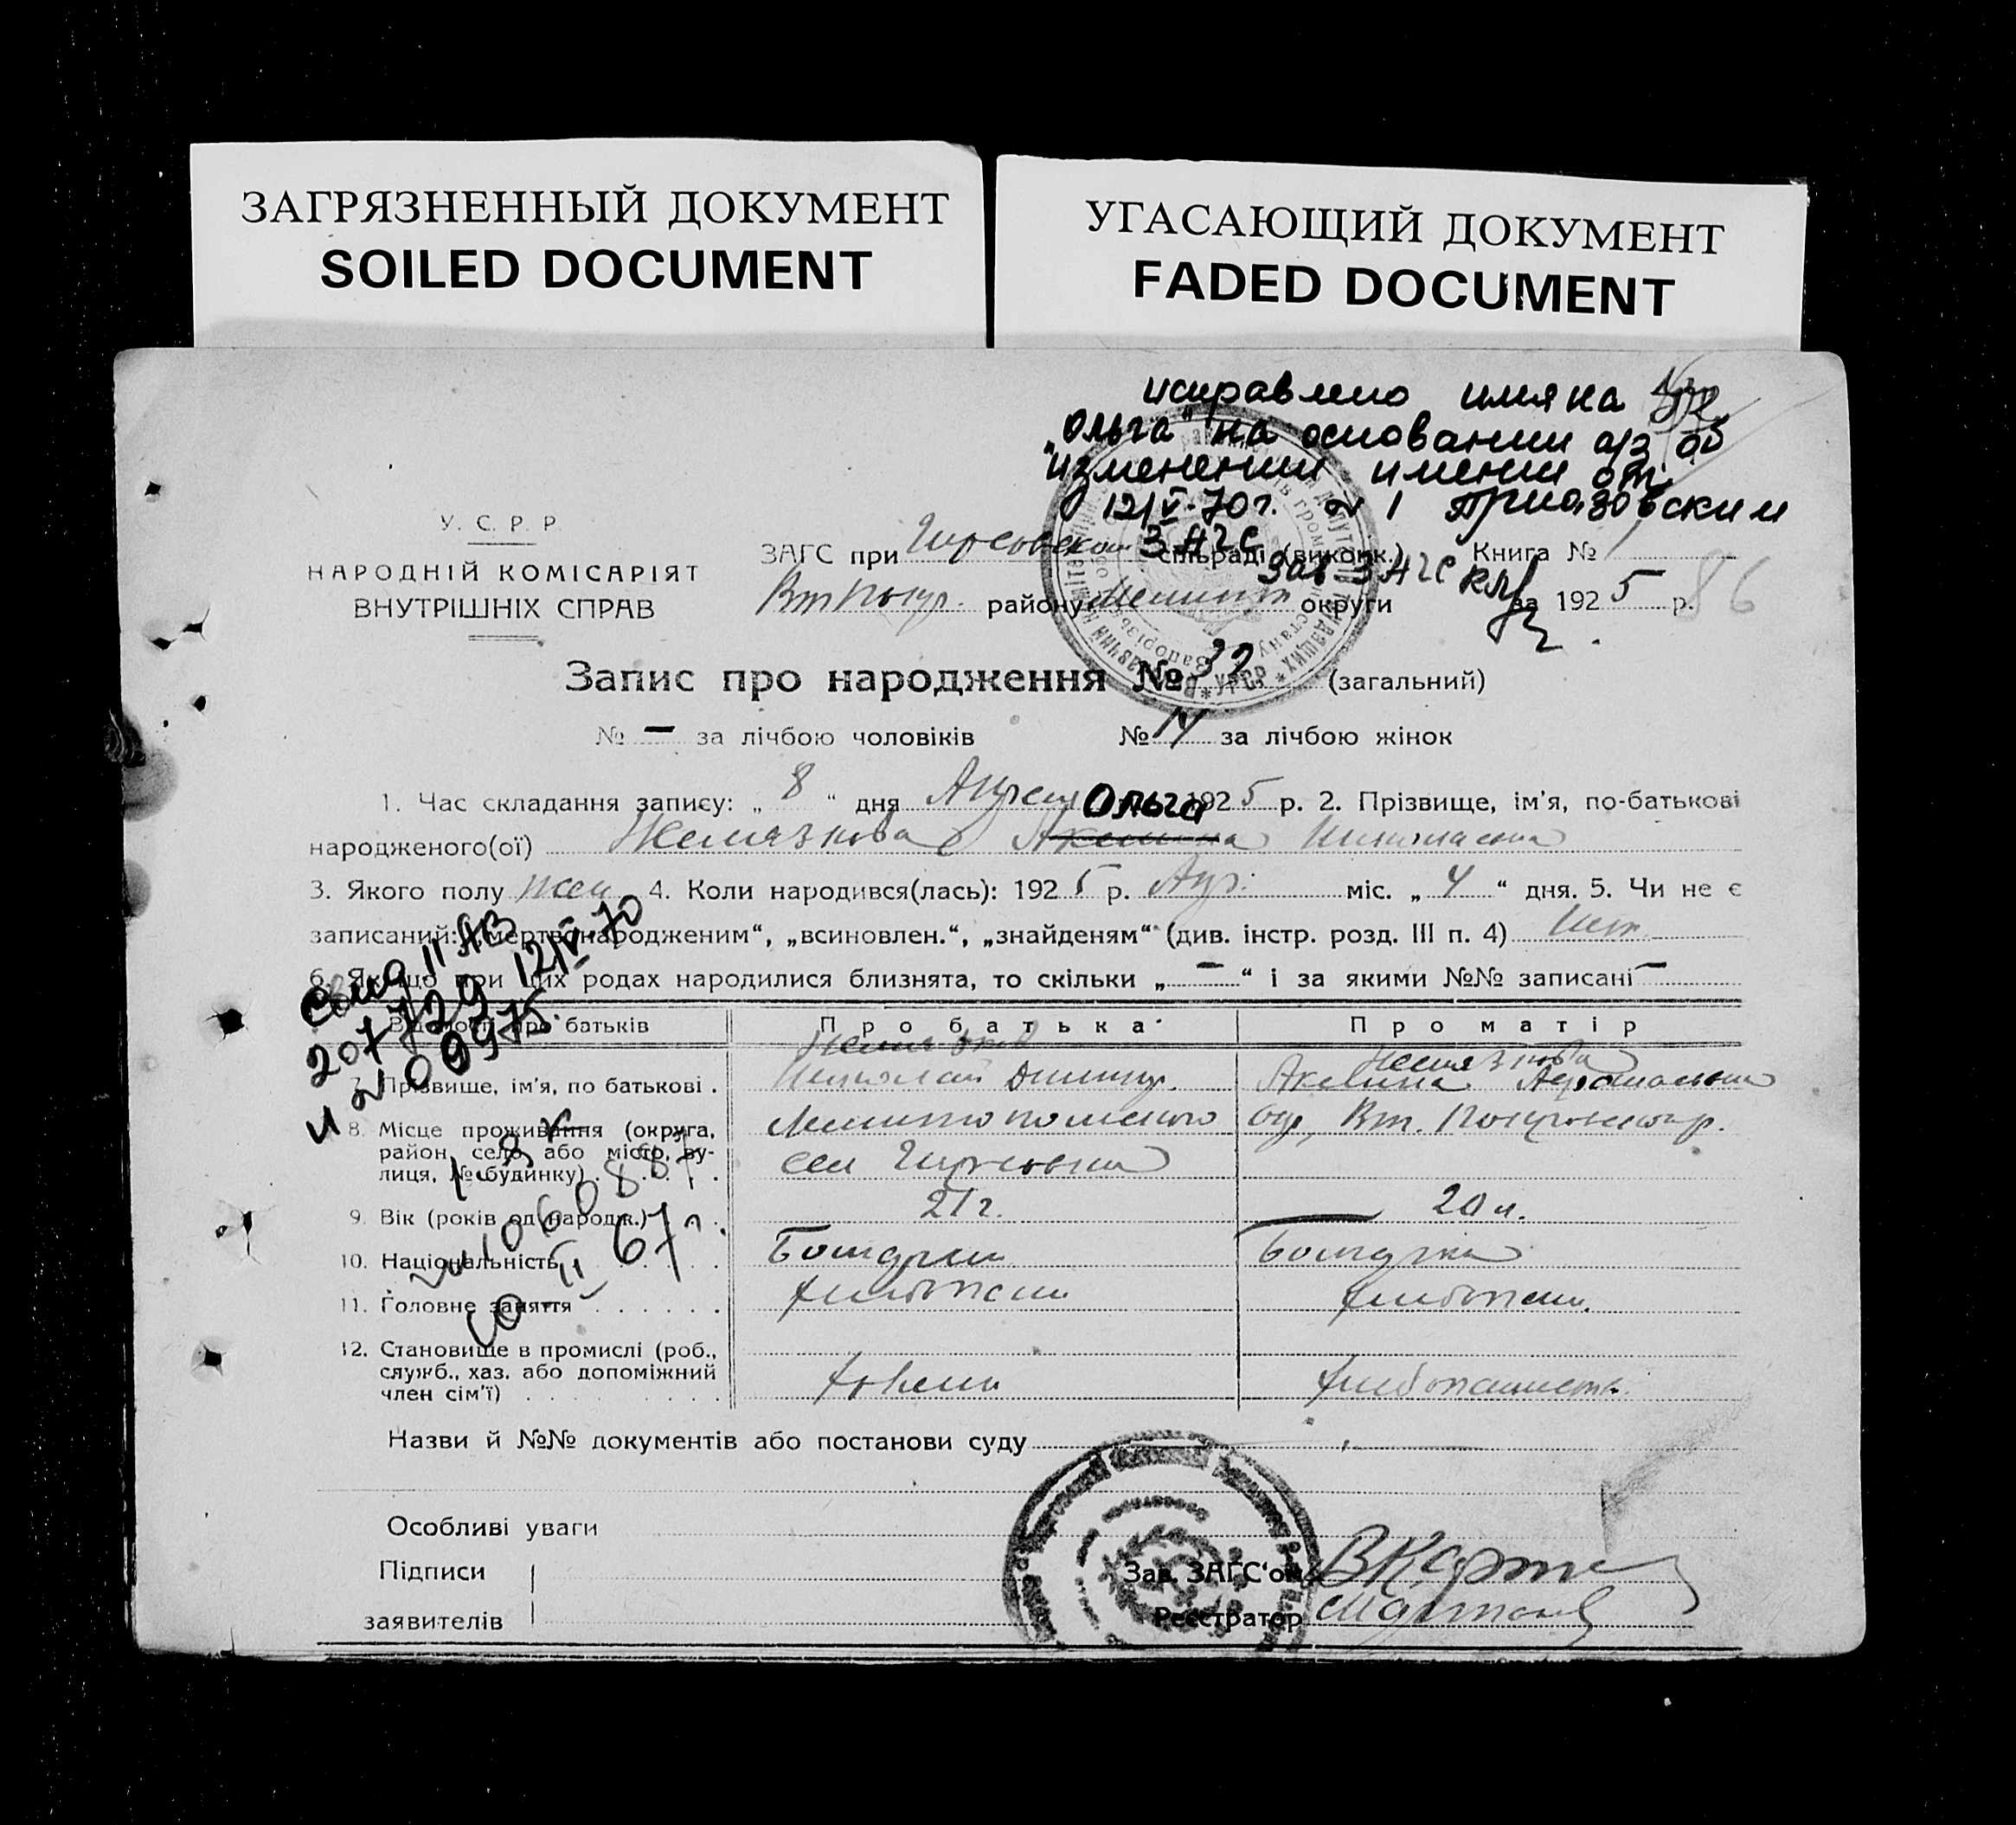 ЗАГРЯЗНЕННЫЙ ДОКУМЕНТ
SOILED DOCUMENT
УГАСАЮЩИЙ ДОКУМЕНТ
FADED DOCUMENT
исправлено имя на
„Ольга" на основании а/з об
изменении имени от
12/V-70г. N 1 Приазовским
ЗАГС
Зав ЗАГС
У. С. Р. Р.
НАРОДНІЙ КОМІСАРІЯТ
ВНУТРІШНІХ СПРАВ
ЗАГС при Гирсовском сільраді (виконк.) Книга № 1
району Мелит округи за 1925 р. 86
Запис про народження № 32 (загальний)
№ — за лічбою чоловіків № 14 за лічбою жінок
1. Час складання запису: „ 8 “ дня Апреля 1925 р. 2. Прізвище, ім'я, по-батькові
Ольга
народженого(ої) Желязкова Акелина Николаевна
3. Якого полу жен 4. Коли народився(лась): 1925 р. Апр. міс. „ 4 “ дня. 5. Чи не є
записаний: „мертвонародженим“, „всиновлен.“, „знайденям“ (див. інстр. розд. III п. 4) Нет
6. Якщо при цих родах народилися близнята, то скільки „ — “ і за якими №№ записані —
12/V-70
207729
N 09975
Відомості про батьків Про батька Про матір
Желязков Желязкова
7. Прізвище, ім'я, по батькові . Николай Димитр. Акелина
8. Місце проживання (округа, район, село або місто, вулиця, № будинку) Мелитопольского окр, Вт. Покровск р.
сел Гирсовка
9. Вік (років од народж.) 21 г. 20 л.
10. Національність Болгарин Болгарка
11. Головне заняття хлебопаш хлебопаш.
12. Становище в промислі (роб., служб., хаз. або допоміжний член сім'ї) хозяин
Назви й №№ документів або постанови суду
Особливі уваги
Підписи
заявителів
Зав. ЗАГС'ом
Реєстратор